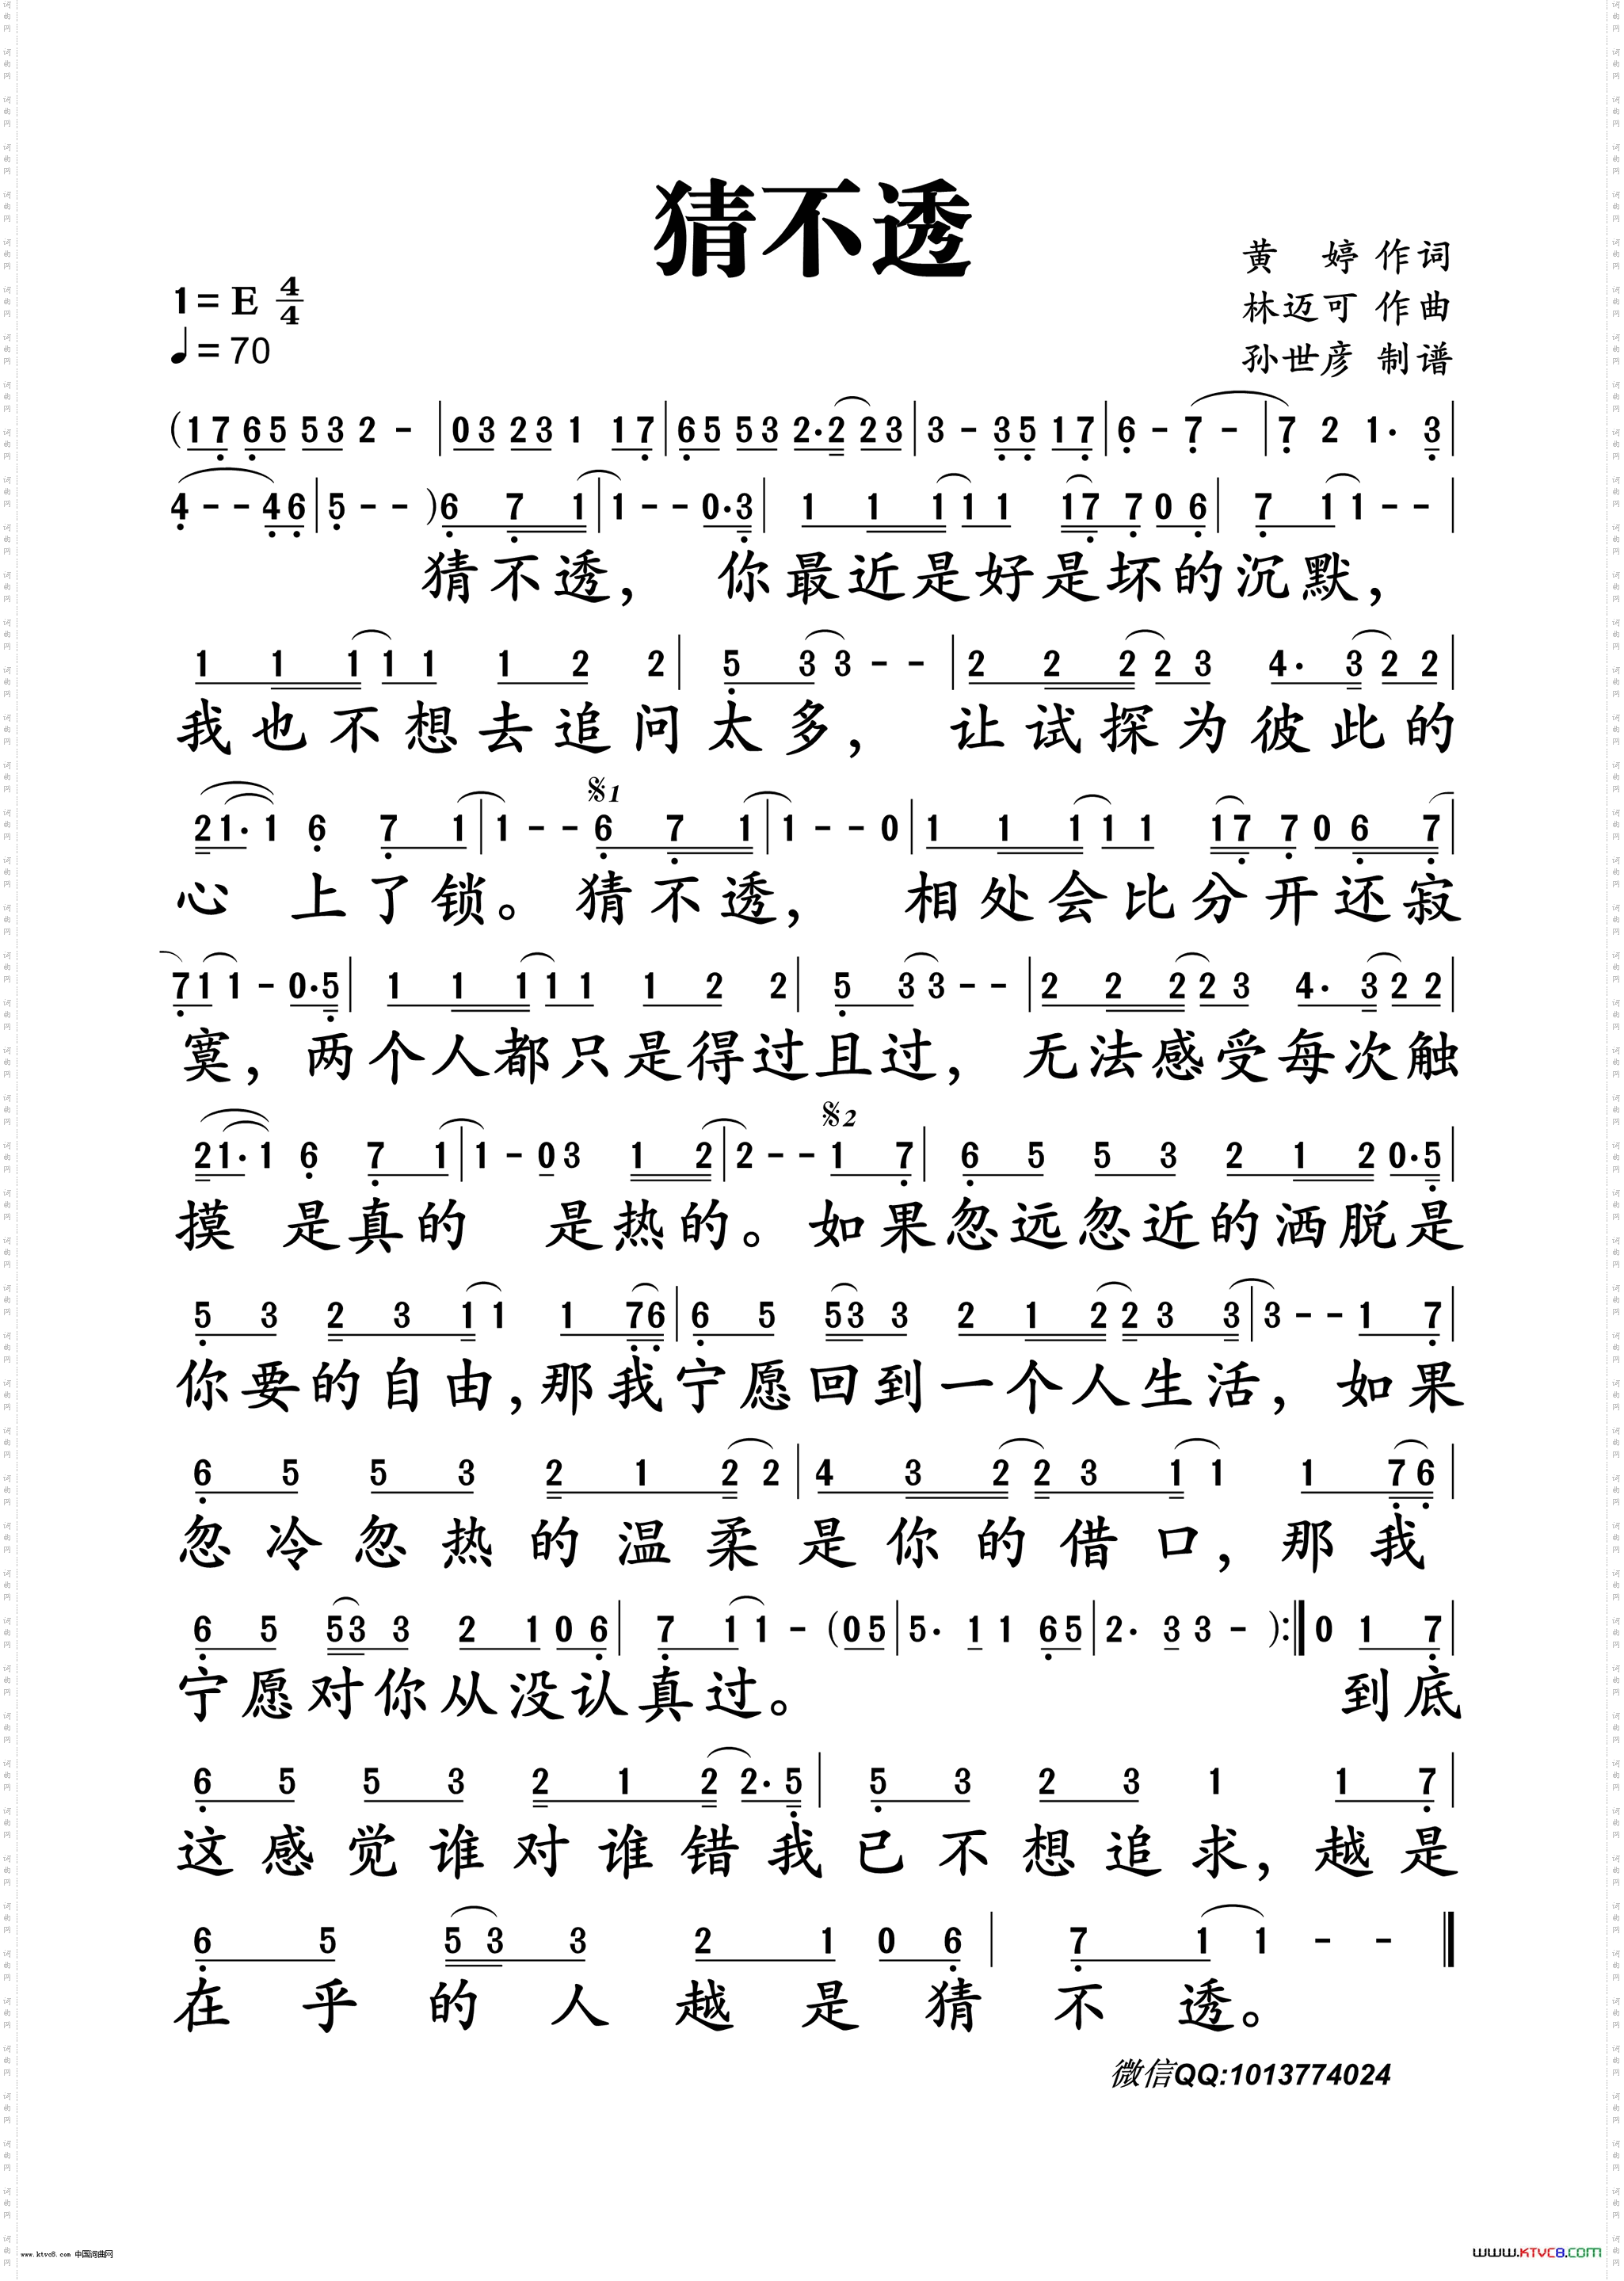 猜不透
黄 婷 作词
林迈可 作曲
孙世彦 制谱
1=E 4/4
♩=70
(17 65 53 2 - | 03 23 1 17 | 65 53 2·2 23 | 3 - 35 17 | 6 - 7 - | 7 2 1· 3 |
4 - - 46 | 5 - - )6 7 1 | 1 - - 0·3 | 1 1 1 1 1 17 7 0 6 | 7 1 1 - - |
猜不透， 你最近是好是坏的沉默，
1 1 1 1 1 1 2 2 | 5 3 3 - - | 2 2 2 2 3 4· 3 2 2
我也不想去追问太多， 让试探为彼此的
2 1· 1 6 7 1 | 1 - - 𝄋1 6 7 1 | 1 - - 0 | 1 1 1 1 1 17 7 0 6 7 |
心 上了锁。猜不透， 相处会比分开还寂
7 1 1 - 0·5 | 1 1 1 1 1 1 2 2 | 5 3 3 - - | 2 2 2 2 3 4· 3 2 2 |
寞，两个人都只是得过且过， 无法感受每次触
2 1· 1 6 7 1 | 1 - 0 3 1 2 | 2 - - 𝄋2 1 7 | 6 5 5 3 2 1 2 0·5 |
摸 是真的 是热的。如果忽远忽近的洒脱是
5 3 2 3 1 1 1 76 | 6 5 53 3 2 1 2 2 3 3 | 3 - - 1 7 |
你要的自由,那我宁愿回到一个人生活，如果
6 5 5 3 2 1 2 2 | 4 3 2 2 3 1 1 1 76 |
忽冷忽热的温柔是你的借口，那我
6 5 53 3 2 1 0 6 | 7 1 1 - (05 | 5· 1 1 65 | 2· 3 3 - ):‖ 0 1 7 |
宁愿对你从没认真过。 到底
6 5 5 3 2 1 2 2· 5 | 5 3 2 3 1 1 7 |
这感觉谁对谁错我已不想追求，越是
6 5 5 3 3 2 1 0 6 | 7 1 1 - - ‖
在乎的人越是猜不透。
微信QQ:1013774024
www.ktvc8.com 中国词曲网
WWW.KTVC8.COM